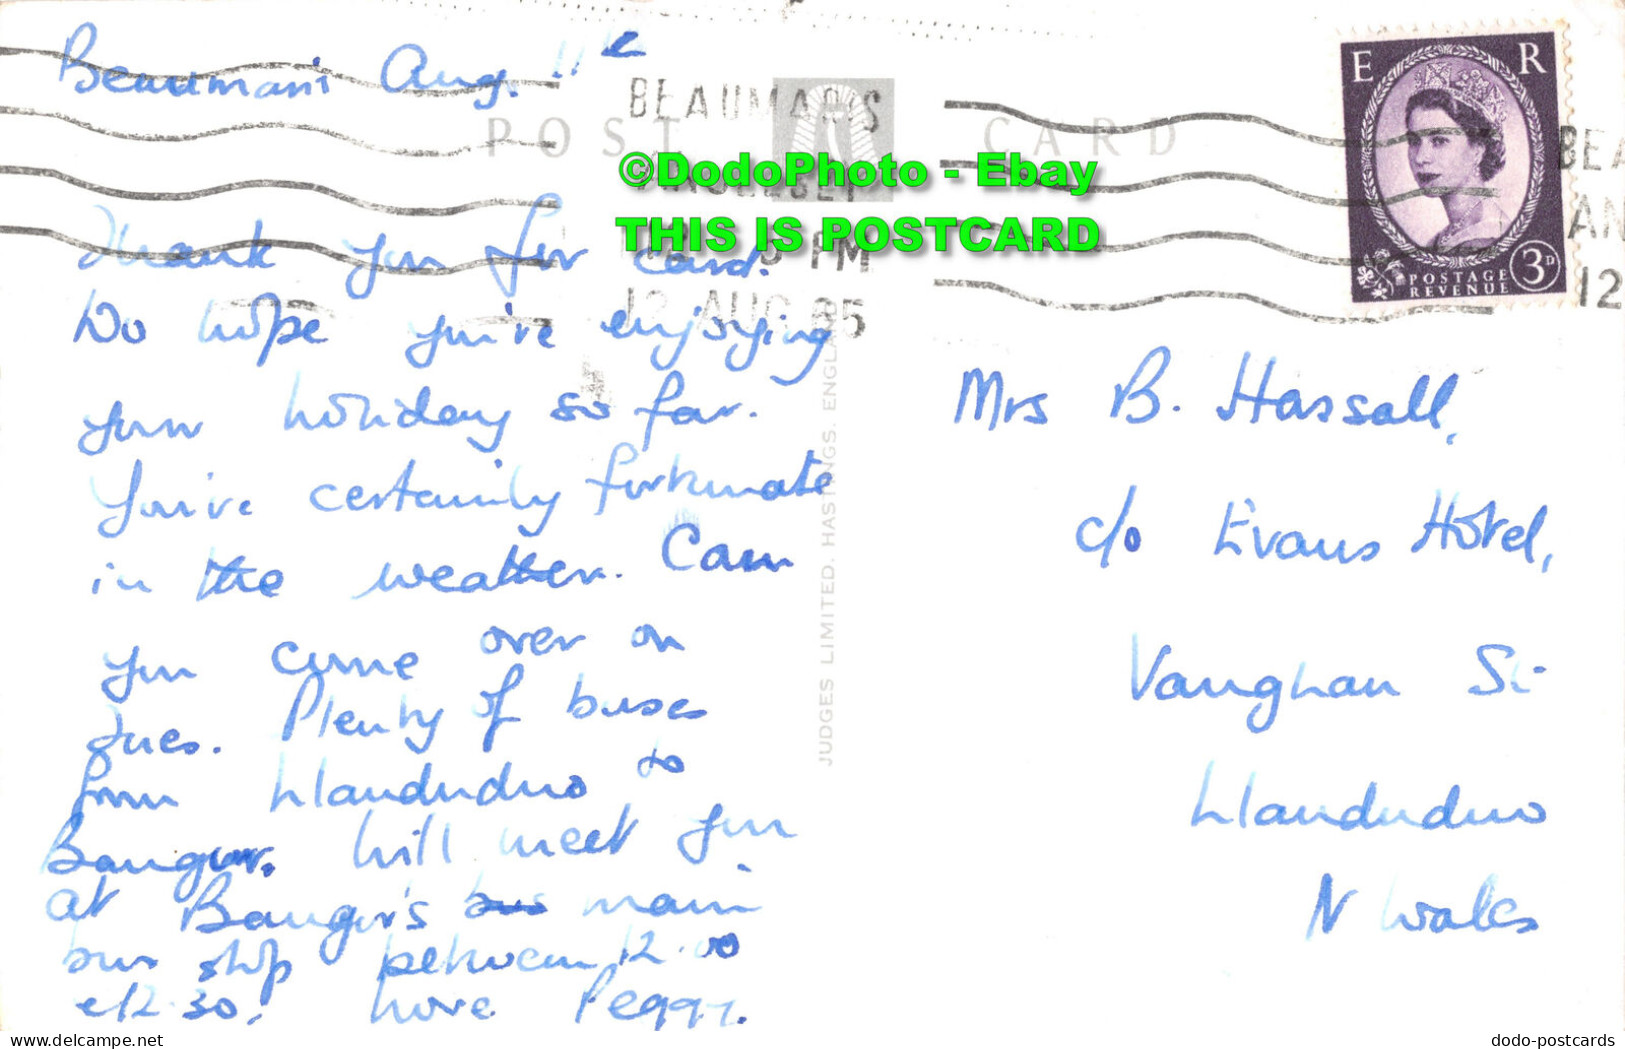 Beaumaris Aug. 11th
POST CARD
BEAUMARIS
ANGLESEY
PM
12 AUG
©DodoPhoto - Ebay
THIS IS POSTCARD
E R
POSTAGE
REVENUE
3D
BEA
AN
12
Thank you for card.
Do hope you're enjoying
your holiday so far.
You're certainly fortunate
in the weather. Can
you come over on
Tues. Plenty of buses
from Llandudno to
Bangor. Will meet you
at Bangor's bus main
bus stop between 12.00
& 12.30. Love Peggy.
JUDGES LIMITED. HASTINGS. ENGLAND
Mrs B. Hassall,
c/o Evans Hotel,
Vaughan St
Llandudno
N Wales
dodo-postcards